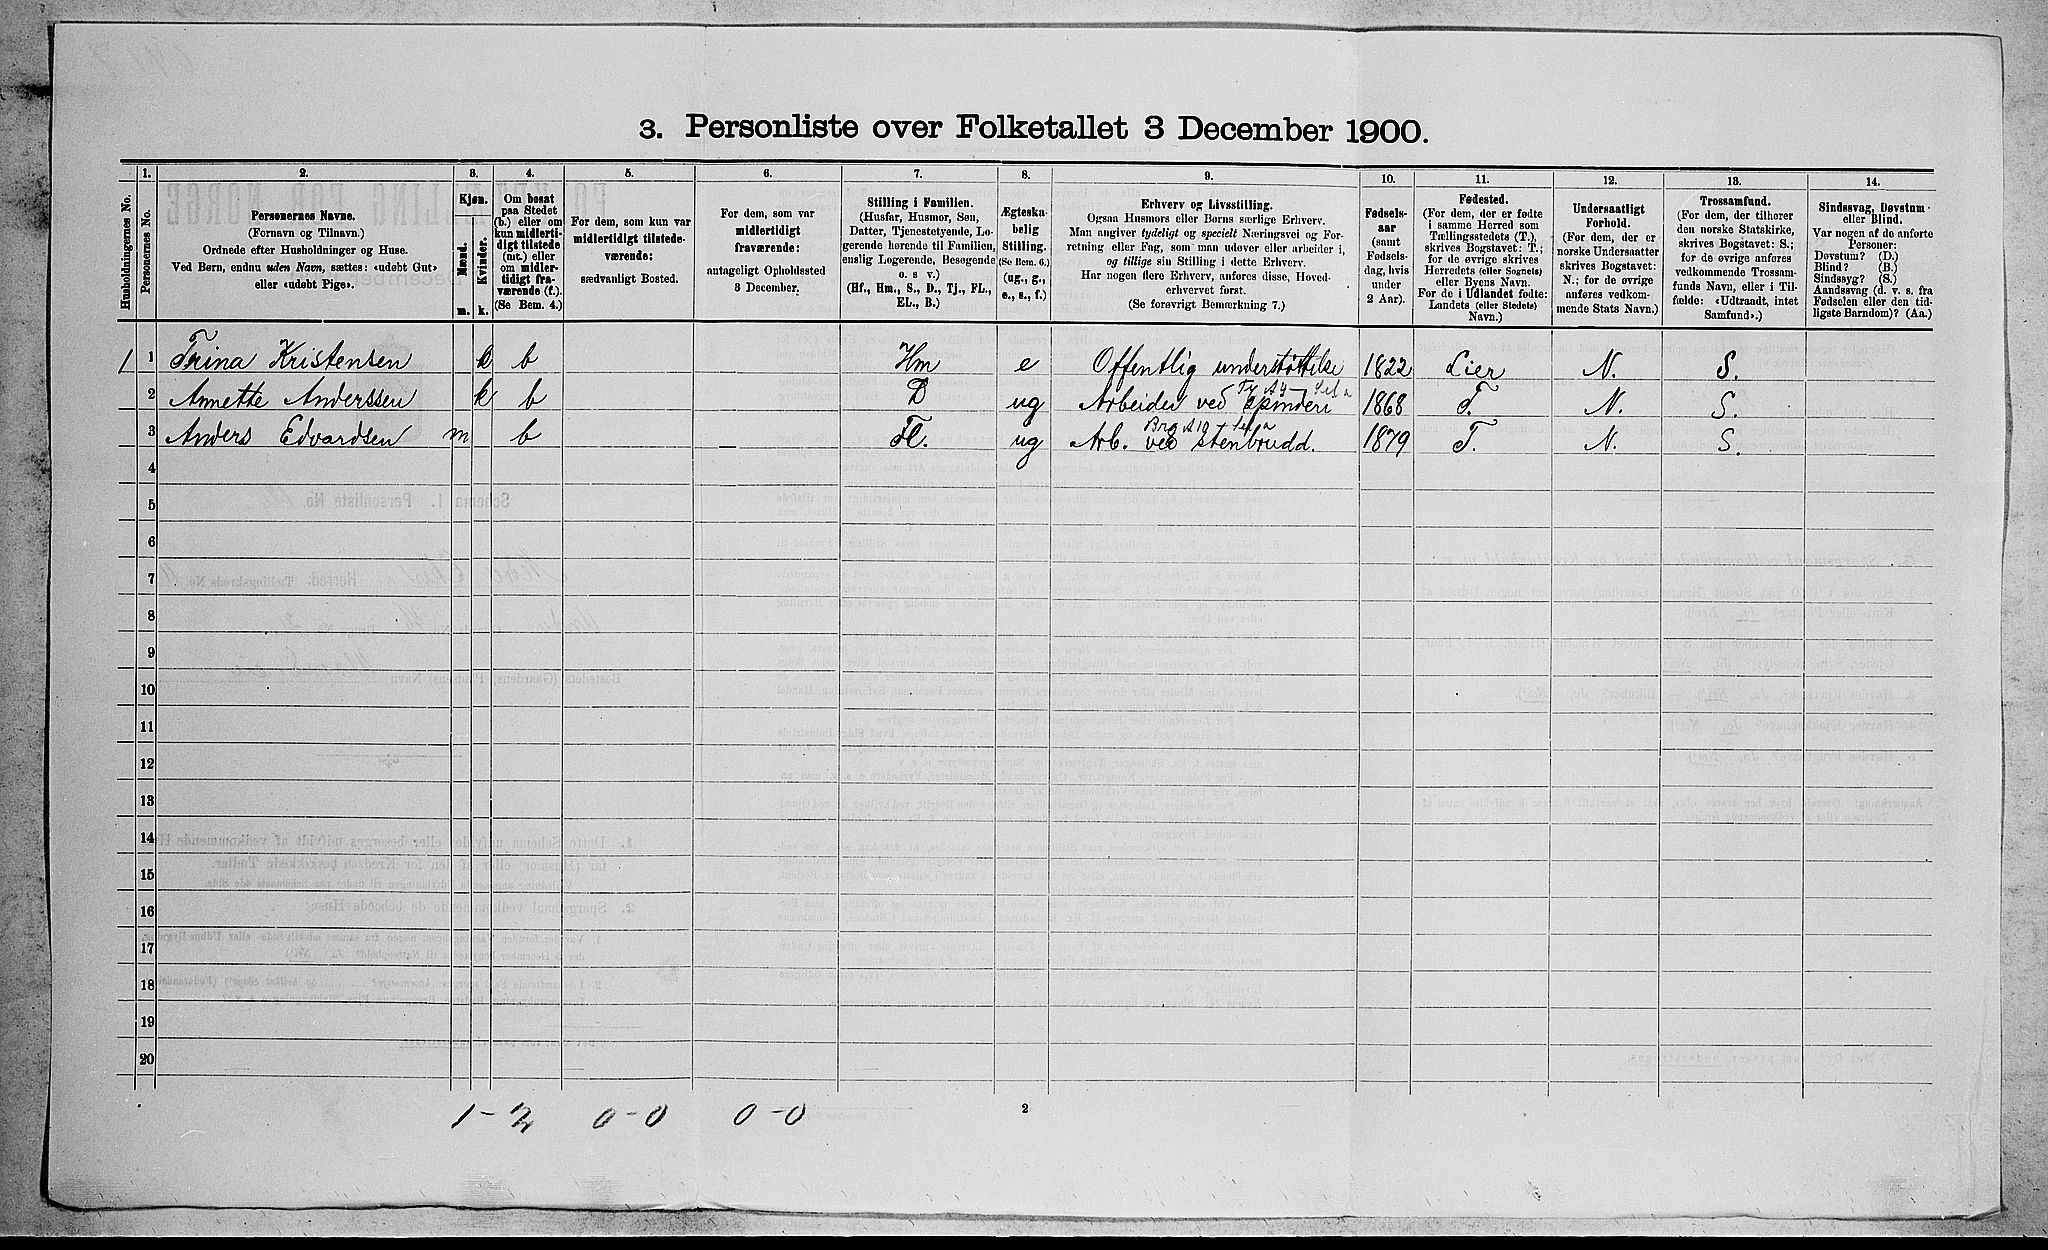 3. Personliste over Folketallet 3 December 1900.
Husholdningernes No.
1.
Personernes No.
2.
Personernes Navne.
(Fornavn og Tilnavn.)
Ordnede efter Husholdninger og Huse.
Ved Børn, endnu uden Navn, sættes: «udøbt Gut»
eller «udøbt Pige».
3.
Kjøn.
Mænd.
m.
Kvinder.
k.
4.
Om bosat
paa Stedet
(b.) eller om
kun midlerti-
digt tilstede
(mt.) eller
om midler-
tidigt fra-
værende (f.).
(Se Bem. 4.)
5.
For dem, som kun var
midlertidigt tilstede-
værende:
sædvanligt Bosted.
6.
For dem, som var
midlertidigt
fraværende:
antageligt Opholdssted
3 December.
7.
Stilling i Familien.
(Husfar, Husmor, Søn,
Datter, Tjenestetyende, Lo-
gerende hørende til Familien,
enslig Logerende, Besøgende
o. s v.)
(Hf., Hm., S., D., Tj., FL.,
EL., B.)
8.
Ægteska-
belig
Stilling.
(Se Bem. 6.)
(ug., g.,
e., s., f.)
9.
Erhverv og Livsstilling.
Ogsaa Husmors eller Børns særlige Erhverv.
Man angiver tydeligt og specielt Næringsvei og For-
retning eller Fag, som man udøver eller arbeider i,
og tillige sin Stilling i dette Erhverv.
Har nogen flere Erhverv, anføres disse, Hoved-
erhvervet først.
(Se forøvrigt Bemærkning 7.)
10.
Fødsels-
aar
(samt
Fødsels-
dag, hvis
under
2 Aar).
11.
Fødested.
(For dem, der er fødte
i samme Herred som
Tællingsstedets (T.),
skrives Bogstavet: T.;
for de øvrige skrives
Herredets (eller Sognets)
eller Byens Navn.
For de i Udlandet fødte:
Landets (eller Stedets)
Navn.)
12.
Undersaatligt
Forhold.
(For dem, der er
norske Undersaatter
skrives Bogstavet:
N.; for de øvrige
anføres vedkom-
mende Stats Navn.)
13.
Trossamfund.
(For dem, der tilhører
den norske Statskirke,
skrives Bogstavet: S.;
for de øvrige anføres
vedkommende Trossam-
funds Navn, eller i Til-
fælde: «Udtraadt, intet
Samfund».)
14.
Sindssvag, Døvstum
eller Blind.
Var nogen af de anførte
Personer:
Døvstum? (D.)
Blind? (B.)
Sindssyg? (S.)
Aandssvag (d. v. s. fra
Fødselen eller den tid-
ligste Barndom)? (Aa.)
1 1 Trina Kristensen k b Hm e Offentlig understøttelse 1822 Lier N. S.
2 Annette Anderssen k b D ug Arbeider ved Spinderi 1868 T. N. S.
3 Anders Edvardsen m b FL. ug Arb. ved stenbrudd. 1879 T. N. S.
4
5
6
7
8
9
10
11
12
13
14
15
16
17
18
19
20
1-2 0-0 0-0
2